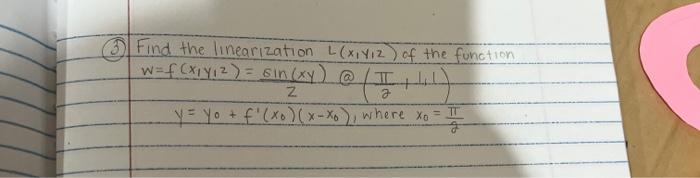 ③ Find the linearization L(x,y,z) of the function
w=f(x,y,z) = sin(xy)/z @ (π/2, 1, 1)
y = y₀ + f'(x₀)(x-x₀), where x₀ = π/2